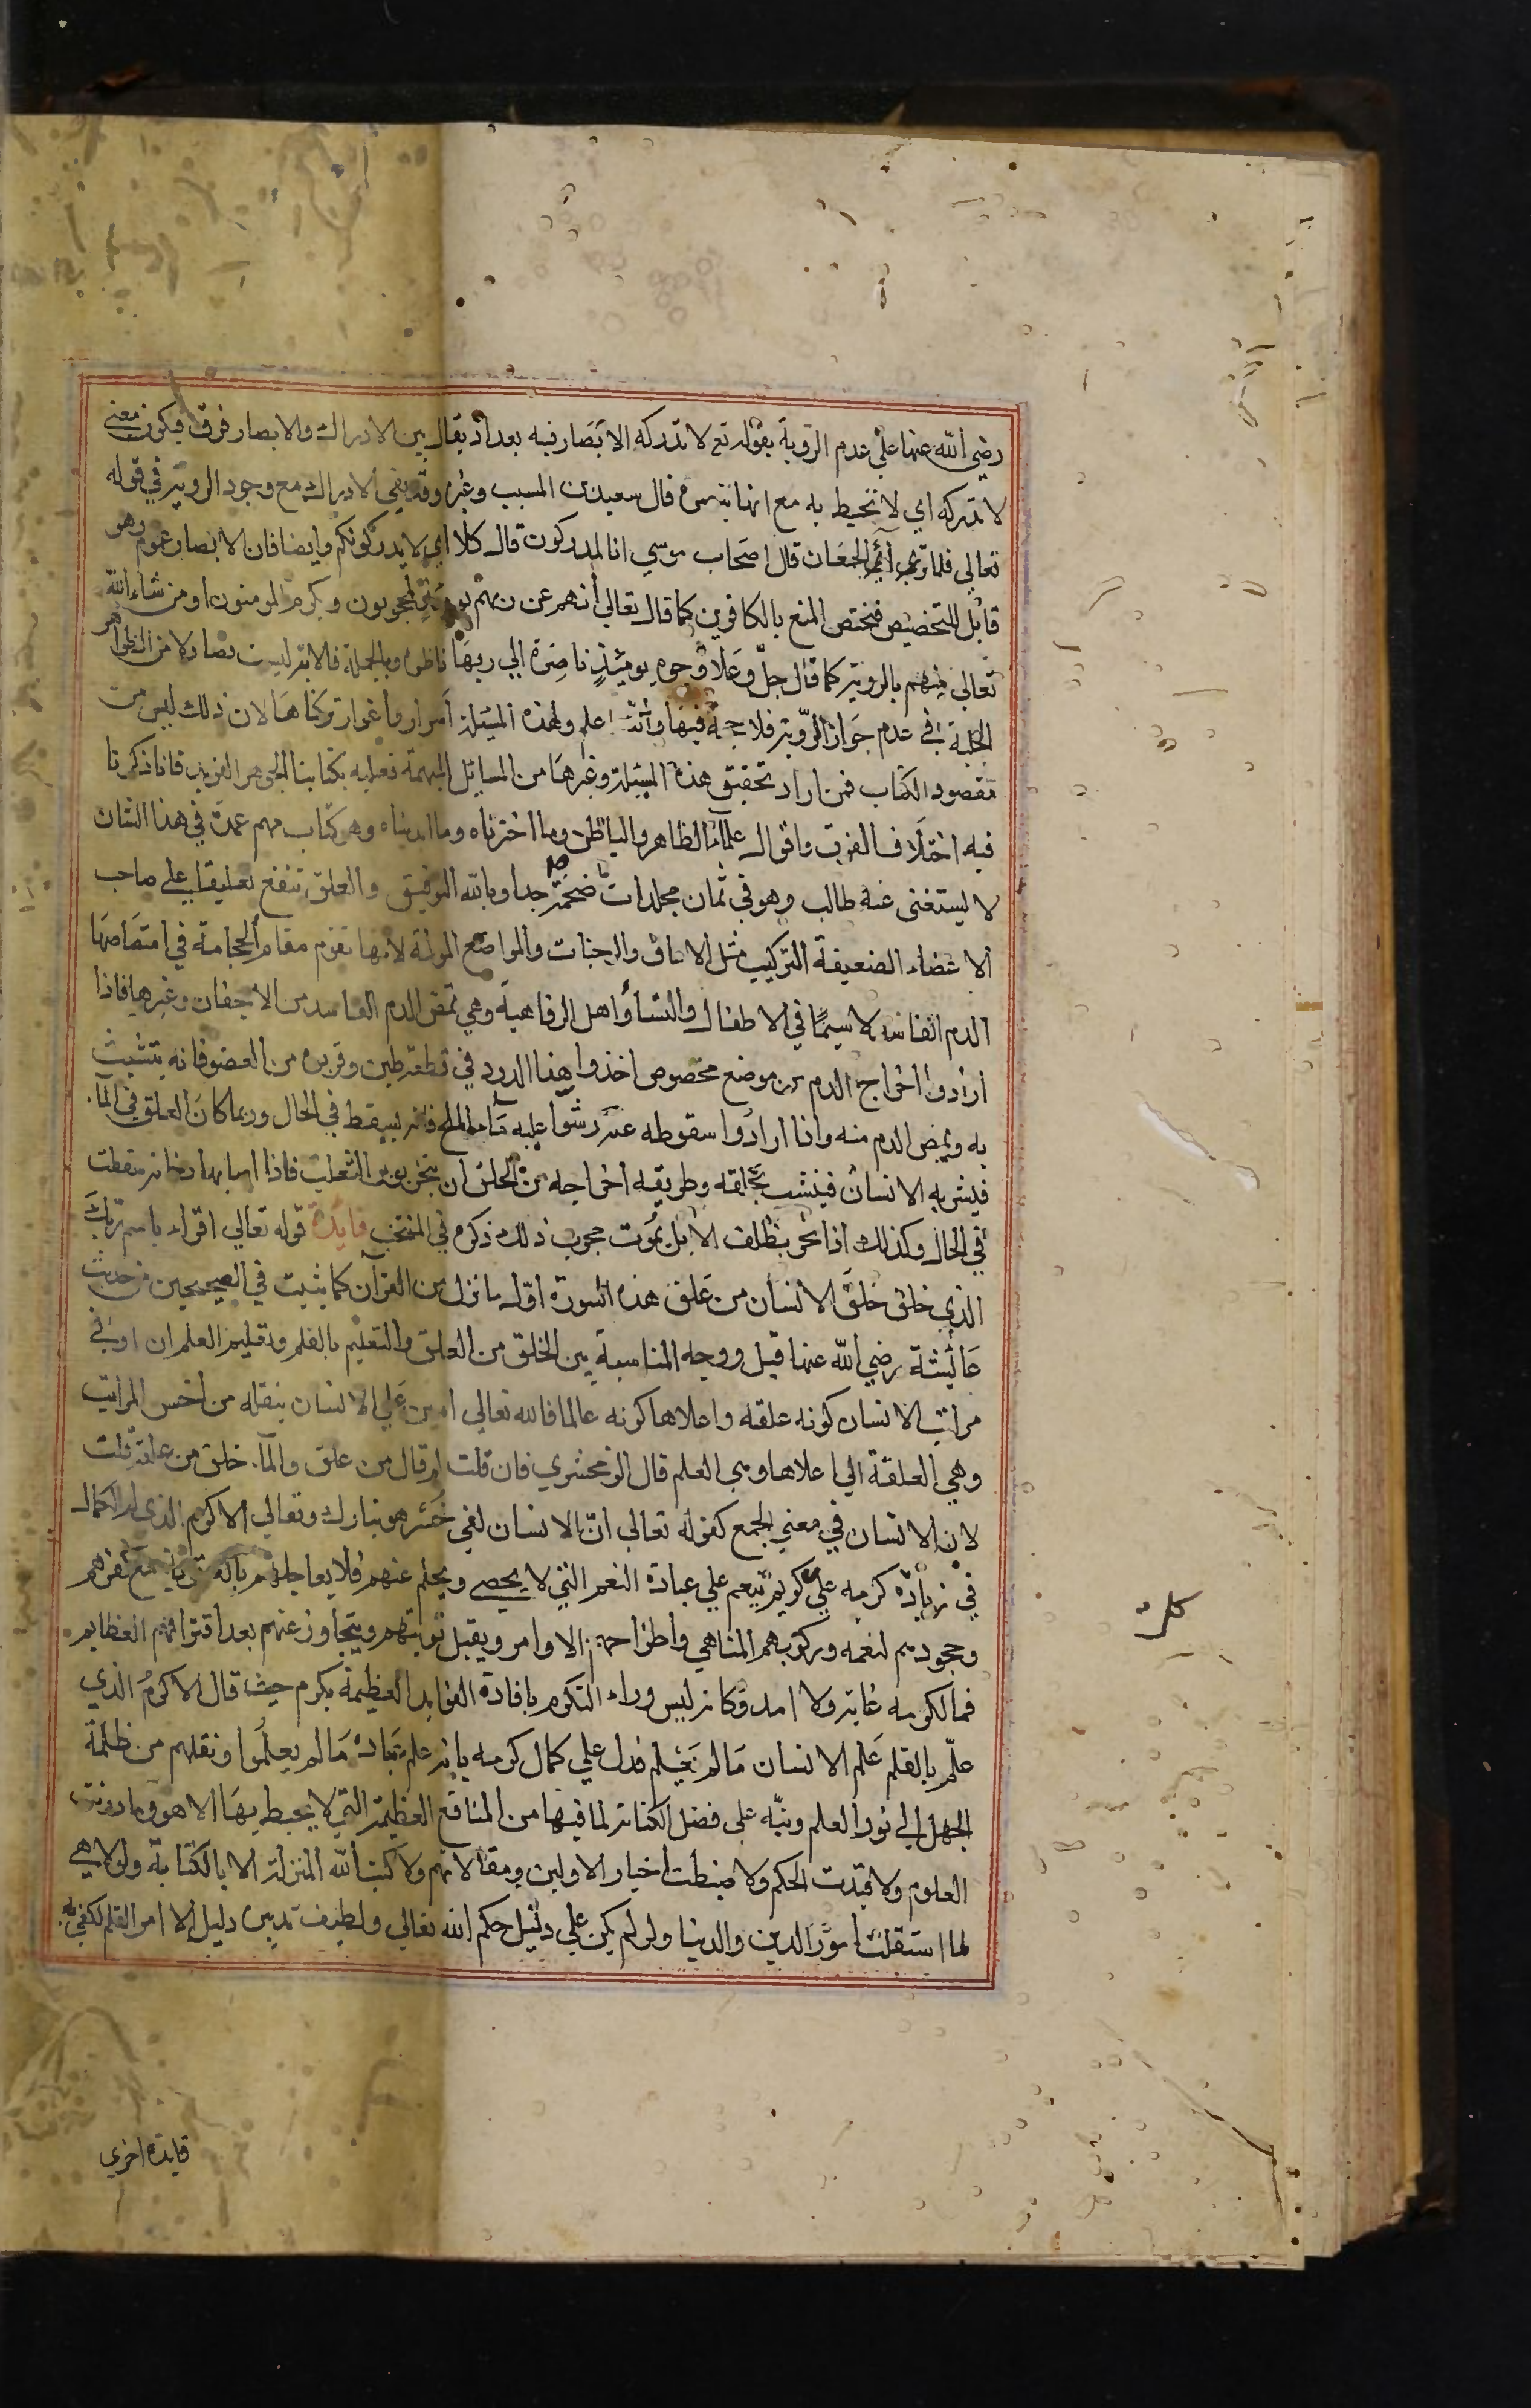 رضي الله عنها علي عدم الروية بقوله تع لا تدركه الابصار فيه بعد اذ يقال بين الادراك والابصار فرق فيكون معني
لا تدركه اي لا تحيط به مع انها تبصره قال سعيد بن المسيب وغيره وقد يفي الادراك مع وجود الروية في قوله
تعالي فلما تراي الجمعان قال اصحاب موسي انا لمدركون قال كلا اي لا يدركونكم وايضا فان الابصار عموم وهو
قابل للتخصيص فيختص المنع بالكافرين كما قال تعالي انهم عن ربهم يومئذ لمحجوبون ويكرم المومنون او من شاء الله
تعالي منهم بالروية كما قال جل وعلا وجوه يومئذ ناضرة الي ربها ناظره وبالجملة فالاية ليست نصا ولا من الظواهر
الجلية في عدم جواز الروية فلا حجة فيها والله اعلم ولهذه المسئلة اسرار واغوار تركناها لان ذلك ليس من
مقصود الكتاب فمن اراد تحقيق هذه المسئلة وغيرها من المسايل المهمة فعليه بكتابنا الجوهر الفريد فانا ذكرنا
فيه اختلاف الفرق واقوال علماء الظاهر والباطن وما اخترناه وما ابديناه وهو كتاب مهم عمدة في هذا الشان
لا يستغني عنه طالب وهو في ثمان مجلدات ضخمة جدا وبالله التوفيق والعلق تنفع تعليقا علي صاحب
الاعضاء الضعيفة التركيب مثل الاماق والوجنات والمواضع المولمة لانها تقوم مقام الحجامة في امتصاصها
الدم الفاسد لا سيما في الاطفال والنساء واهل الرفاهية وهي تمص الدم الفاسد من الاجفان وغيرها فاذا
ارادوا اخراج الدم من موضع مخصوص اخذوا هذا الدود في قطعة طين وقربوه من العضو فانه يتشبث
به ويمص الدم منه واذا ارادوا سقوطه عنه رشوا عليه ماء الملح فانه يسقط في الحال وربما كان العلق في الماء
فيشربه الانسان فينشب بحلقه وطريقه اخراجه من الحلق ان يبخر بوبر الثعلب فاذا اصابها دخانه سقطت
في الحال وكذلك اذا بخر بظلف الابل يموت مجرب ذلك ذكره في المنتخب فايدة قوله تعالي اقراء باسم ربك
الذي خلق خلق الانسان من علق هذه السورة اول ما نزل من القران كما يثبت في الصحيحين من حديث
عائشة رضي الله عنها قيل ووجه المناسبة بين الخلق من العلق والتعليم بالقلم وتعليم العلم ان ادني
مراتب الانسان كونه علقه واعلاها كونه عالما فالله تعالي امتن علي الانسان بنقله من اخس المراتب
وهي العلقة الي اعلاها وهي العلم قال الزمخشري فان قلت لم قال من علق وانما خلق من علقة قلت
لان الانسان في معني الجمع كقوله تعالي ان الانسان لفي خسر هو تبارك وتعالي الاكرم الذي له الكمال
في زيادة كرمه علي كل كريم ينعم علي عباده النعم التي لا يحصي ويحلم عنهم فلا يعاجلهم بالعقوبة مع كفرهم
وجحودهم لنعمه وركوبهم المناهي واطراحهم الاوامر ويقبل توبتهم ويتجاوز عنهم بعد اقترافهم العظايم
فما لكرمه غاية ولا امد وكانه ليس وراء التكرم بافادة الفوايد العظيمة تكرم حيث قال الاكرم الذي
علم بالقلم علم الانسان ما لم يعلم فدل علي كمال كرمه بانه علم عباده ما لم يعلموا ونقلهم من ظلمة
الجهل الي نور العلم ونبه علي فضل الكتابة لما فيها من المنافع العظيمة التي لا يحيط بها الا هو وما دونت
العلوم ولا قيدت الحكم ولا ضبطت اخبار الاولين ومقالاتهم ولا كتب الله المنزلة الا بالكتابة ولولا هي
لما استقلت امور الدين والدنيا ولو لم يكن علي دليل حكم الله تعالي ولطيف تدبيره دليل الا امر القلم لكفي به
فايدة اخري